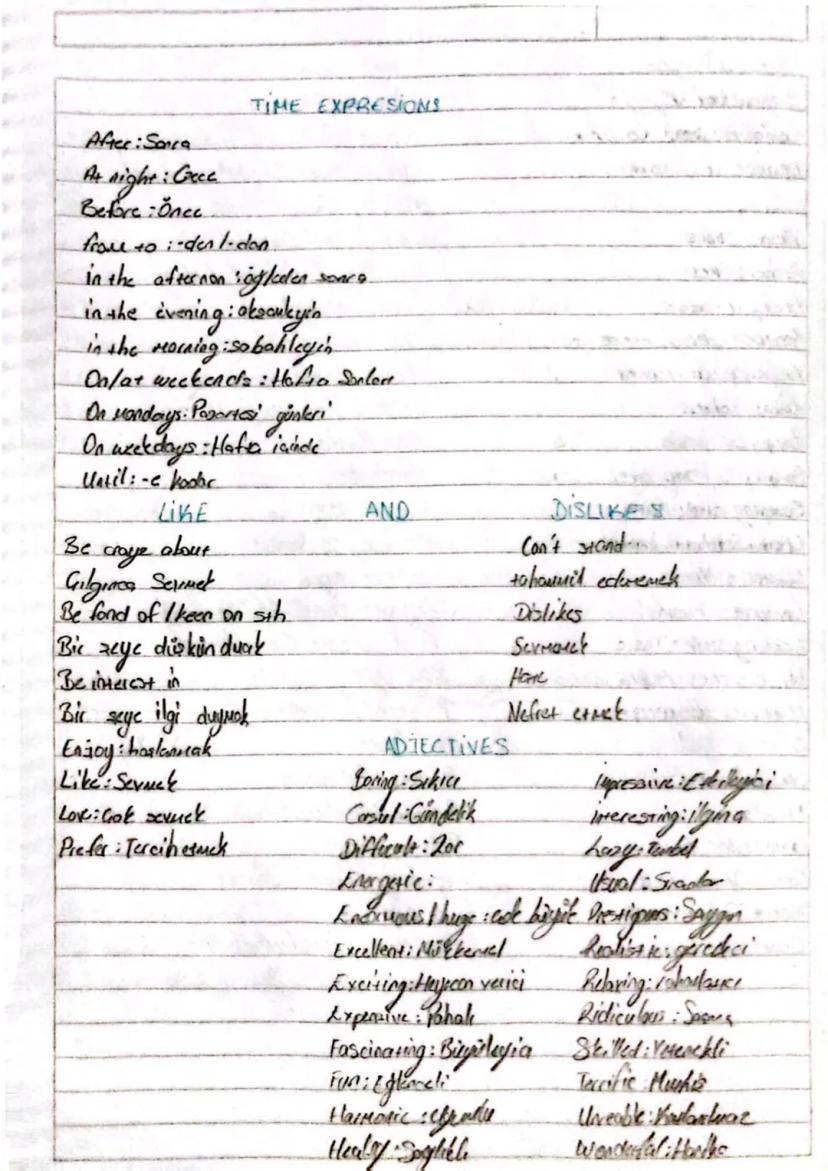 TIME EXPRESIONS
After : Sonra
At night : Gece
Before : Önce
from to : -den/-dan
in the afternon : öğleden sonra
in the evening : akşamleyin
in the morning : sabahleyin
On/at weekends : Hafta Sonları
On mondays : Pazartesi günleri
On weekdays : Hafta içinde
Until : -e kadar
LIKE AND DISLIKES
Be craze about Can't stand
Çılgınca Sevmek tahammül edememek
Be fond of / keen on sth Dislikes
Bir şeye düşkün Sevmemek
Be interest in Hate
Bir şeye ilgi duymak Nefret etmek
Enjoy : hoşlanmak ADJECTIVES
Like : Sevmek Boring : Sıkıcı Impressive : Etkileyici
Love : Çok sevmek Casul : Gündelik interesting : ilginç
Prefer : Tercih etmek Difficult : Zor Lazy : Tembel
Energetic : Usual : Sıradan
Enormous / huge : çok büyük Prestigous : Saygın
Excellent : Mükkemel Realistic : gerçekçi
Exciting : Heyecan verici Relaxing : rahatlatıcı
Expensive : Pahalı Ridiculous : Saçma
Fascinating : Büyüleyici Skilled : Yetenekli
Fun : Eğlenceli Terrific : Müthiş
Harmonic : uyumlu
Healty : Sağlıklı Wonderful : Harika